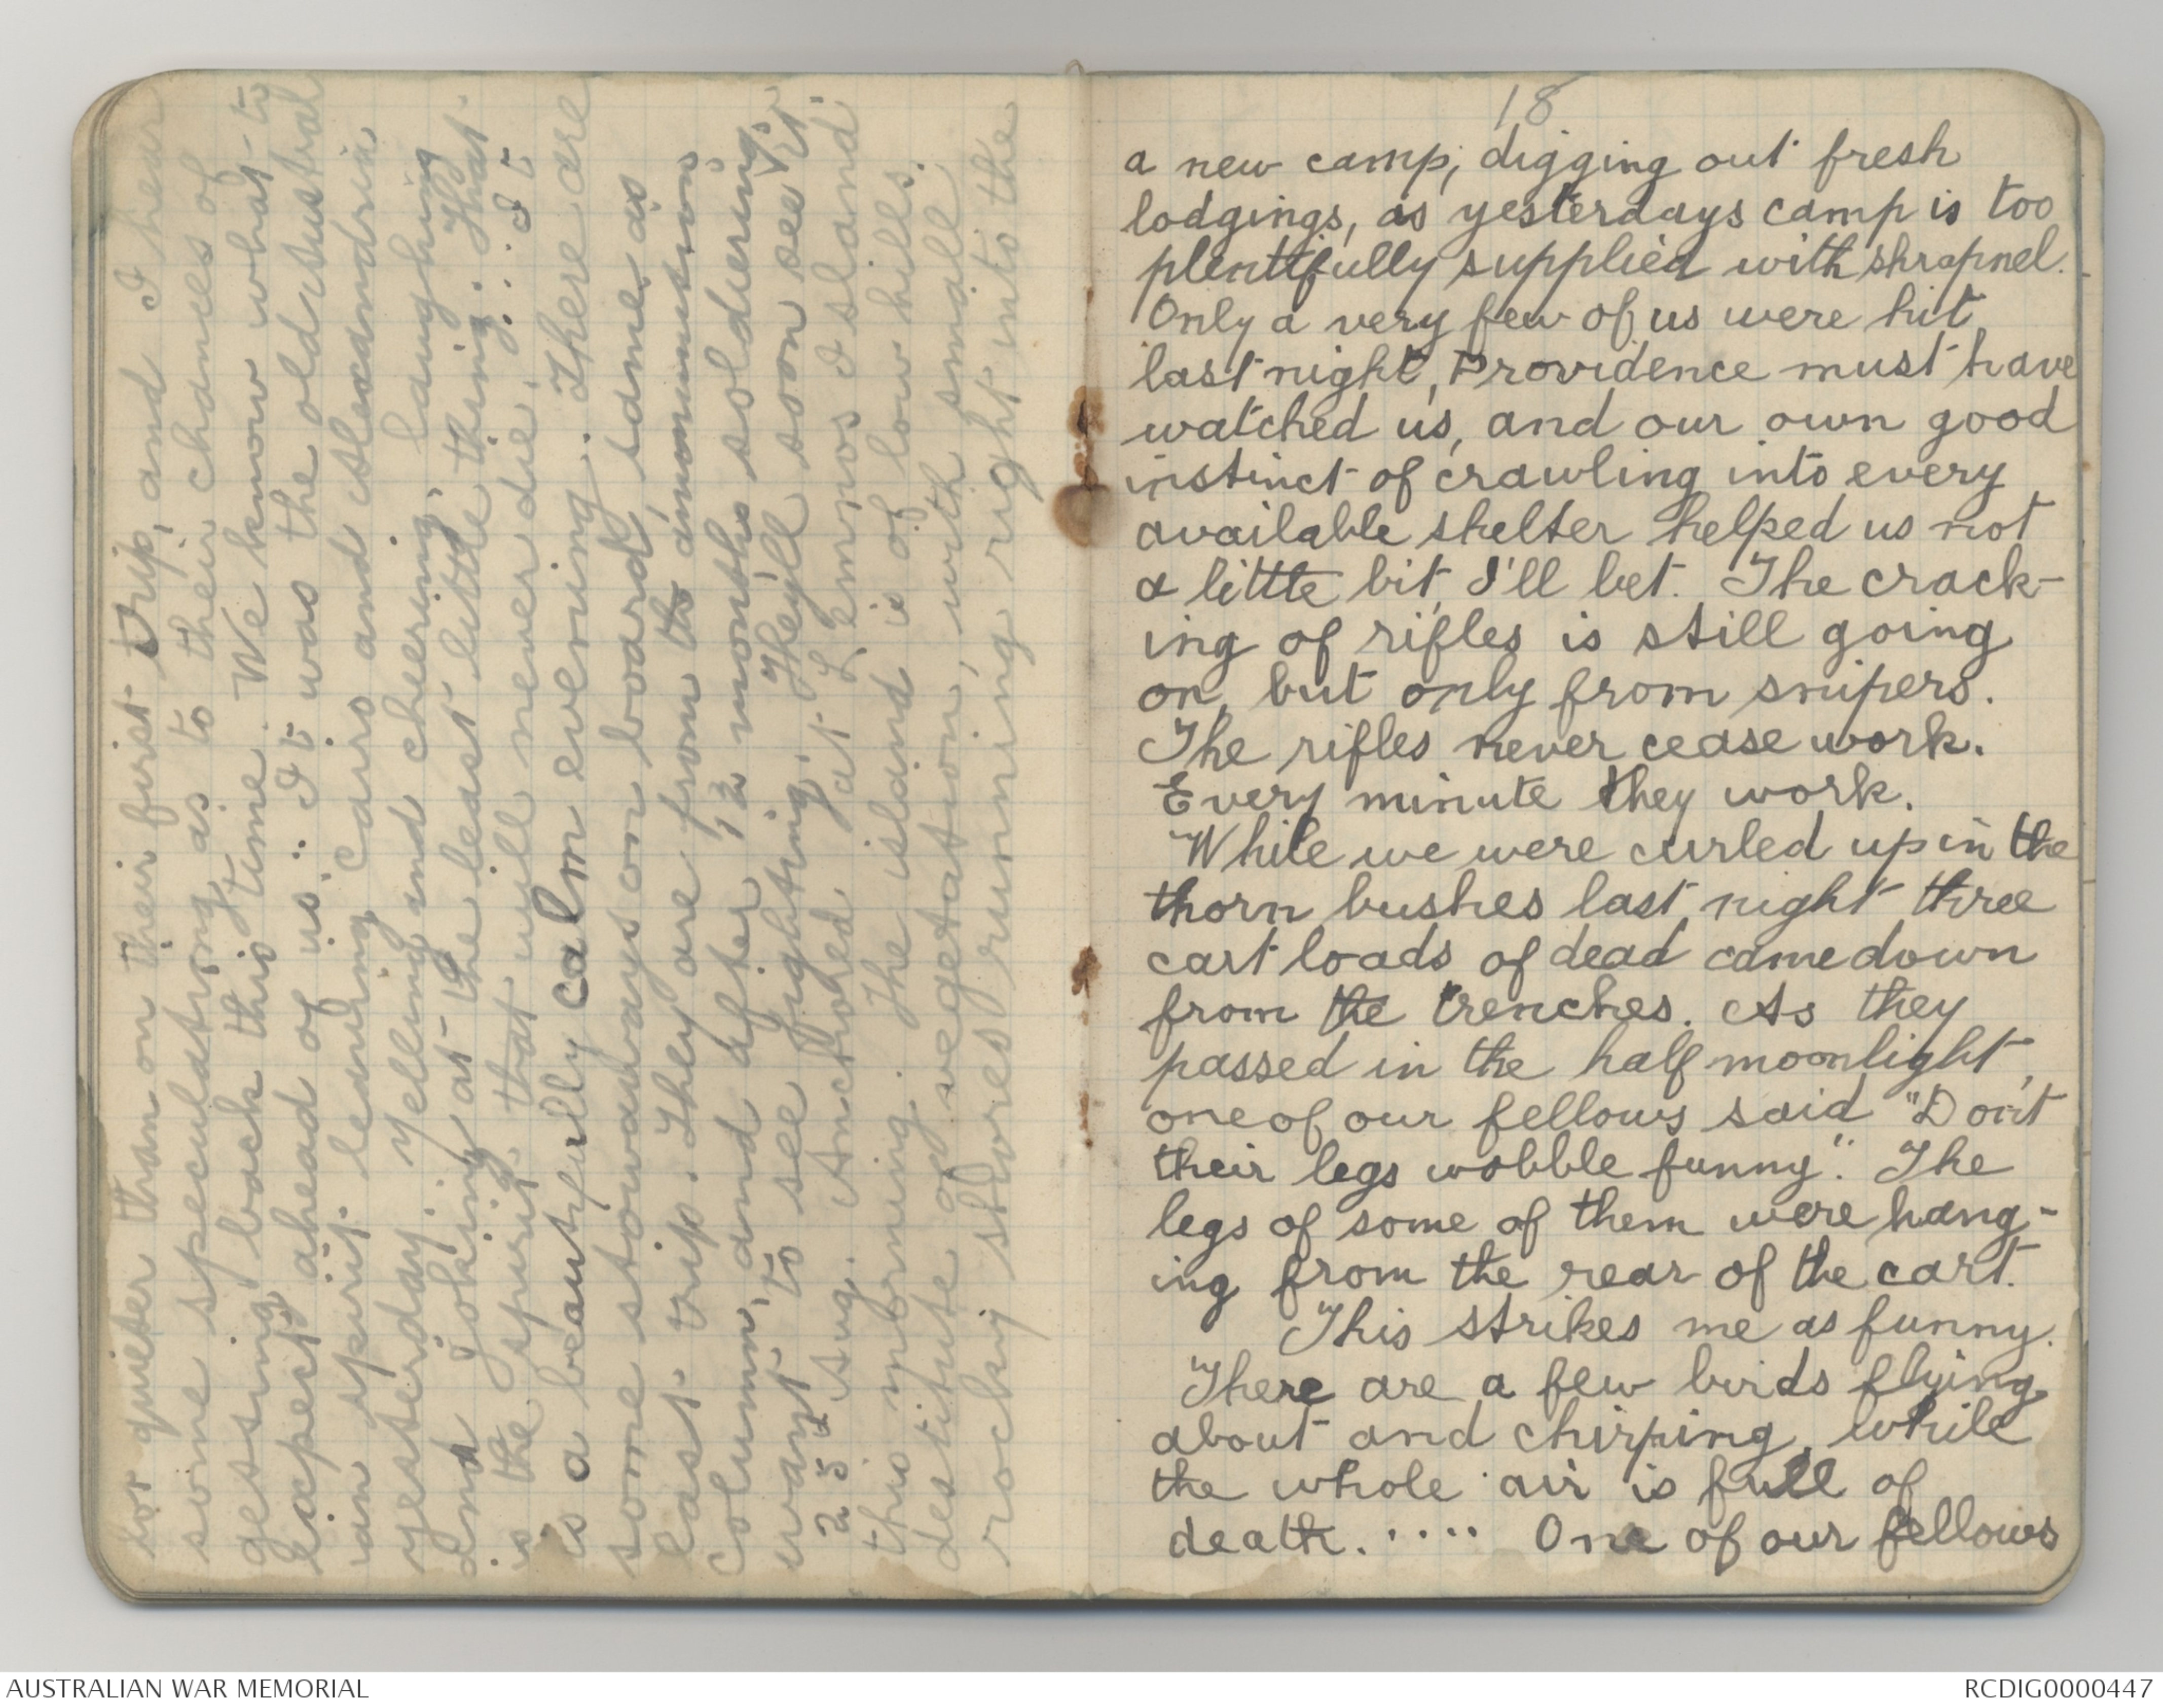 for quieter than on their first trip, and I hear
some speculating as to their chances of
getting back this time. We know what to
expect ahead of us. It was the old Austral
ian spirit leaving Cairo and Alexandria
yesterday. Yelling and cheering, laughing
and joking at the least little thing. That
is the spirit that will never die. .... It
is a beautifully calm evening. There are
some stowaways on board, same as
last trip. They are from the ammunition
column, and after 12 months soldiering
want to see fighting. They'll soon see it.
25th Aug. Anchored at Lemnos Island
this morning. The island is of low hills,
destitute of vegetation, with small
rocky shores running right into the
18
a new camp, digging out fresh
lodgings, as yesterdays camp is too
plentifully supplied with shrapnel.
Only a very few of us were hit
last night, Providence must have
watched us, and our own good
instinct of crawling into every
available shelter helped us not
a little bit, I'll bet. The crack-
ing of rifles is still going
on, but only from snipers.
The rifles never cease work.
Every minute they work.
While we were curled up in the
thorn bushes last night three
cart loads of dead came down
from the trenches. As they
passed in the half moonlight,
one of our fellows said "Don't
their legs wobble funny". The
legs of some of them were hang-
ing from the rear of the cart.
This strikes me as funny.
There are a few birds flying
about and chirping, while
the whole air is full of
death..... One of our fellows
AUSTRALIAN WAR MEMORIAL
RCDIG0000447